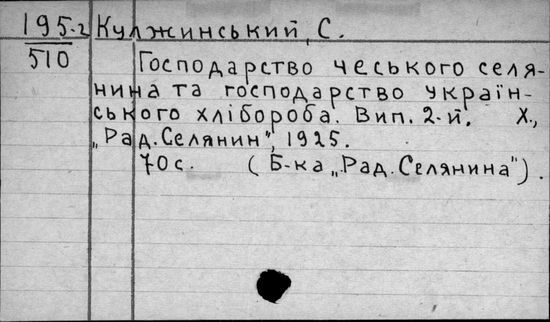 195-2 Кулжинський, С.
510
Господарство чеського селя-
нина та господарство україн-
ського хлібороба. Вип. 2-й. Х.,
„Рад. Селянин", 1925.
70 с. (Б-ка „Рад. Селянина").